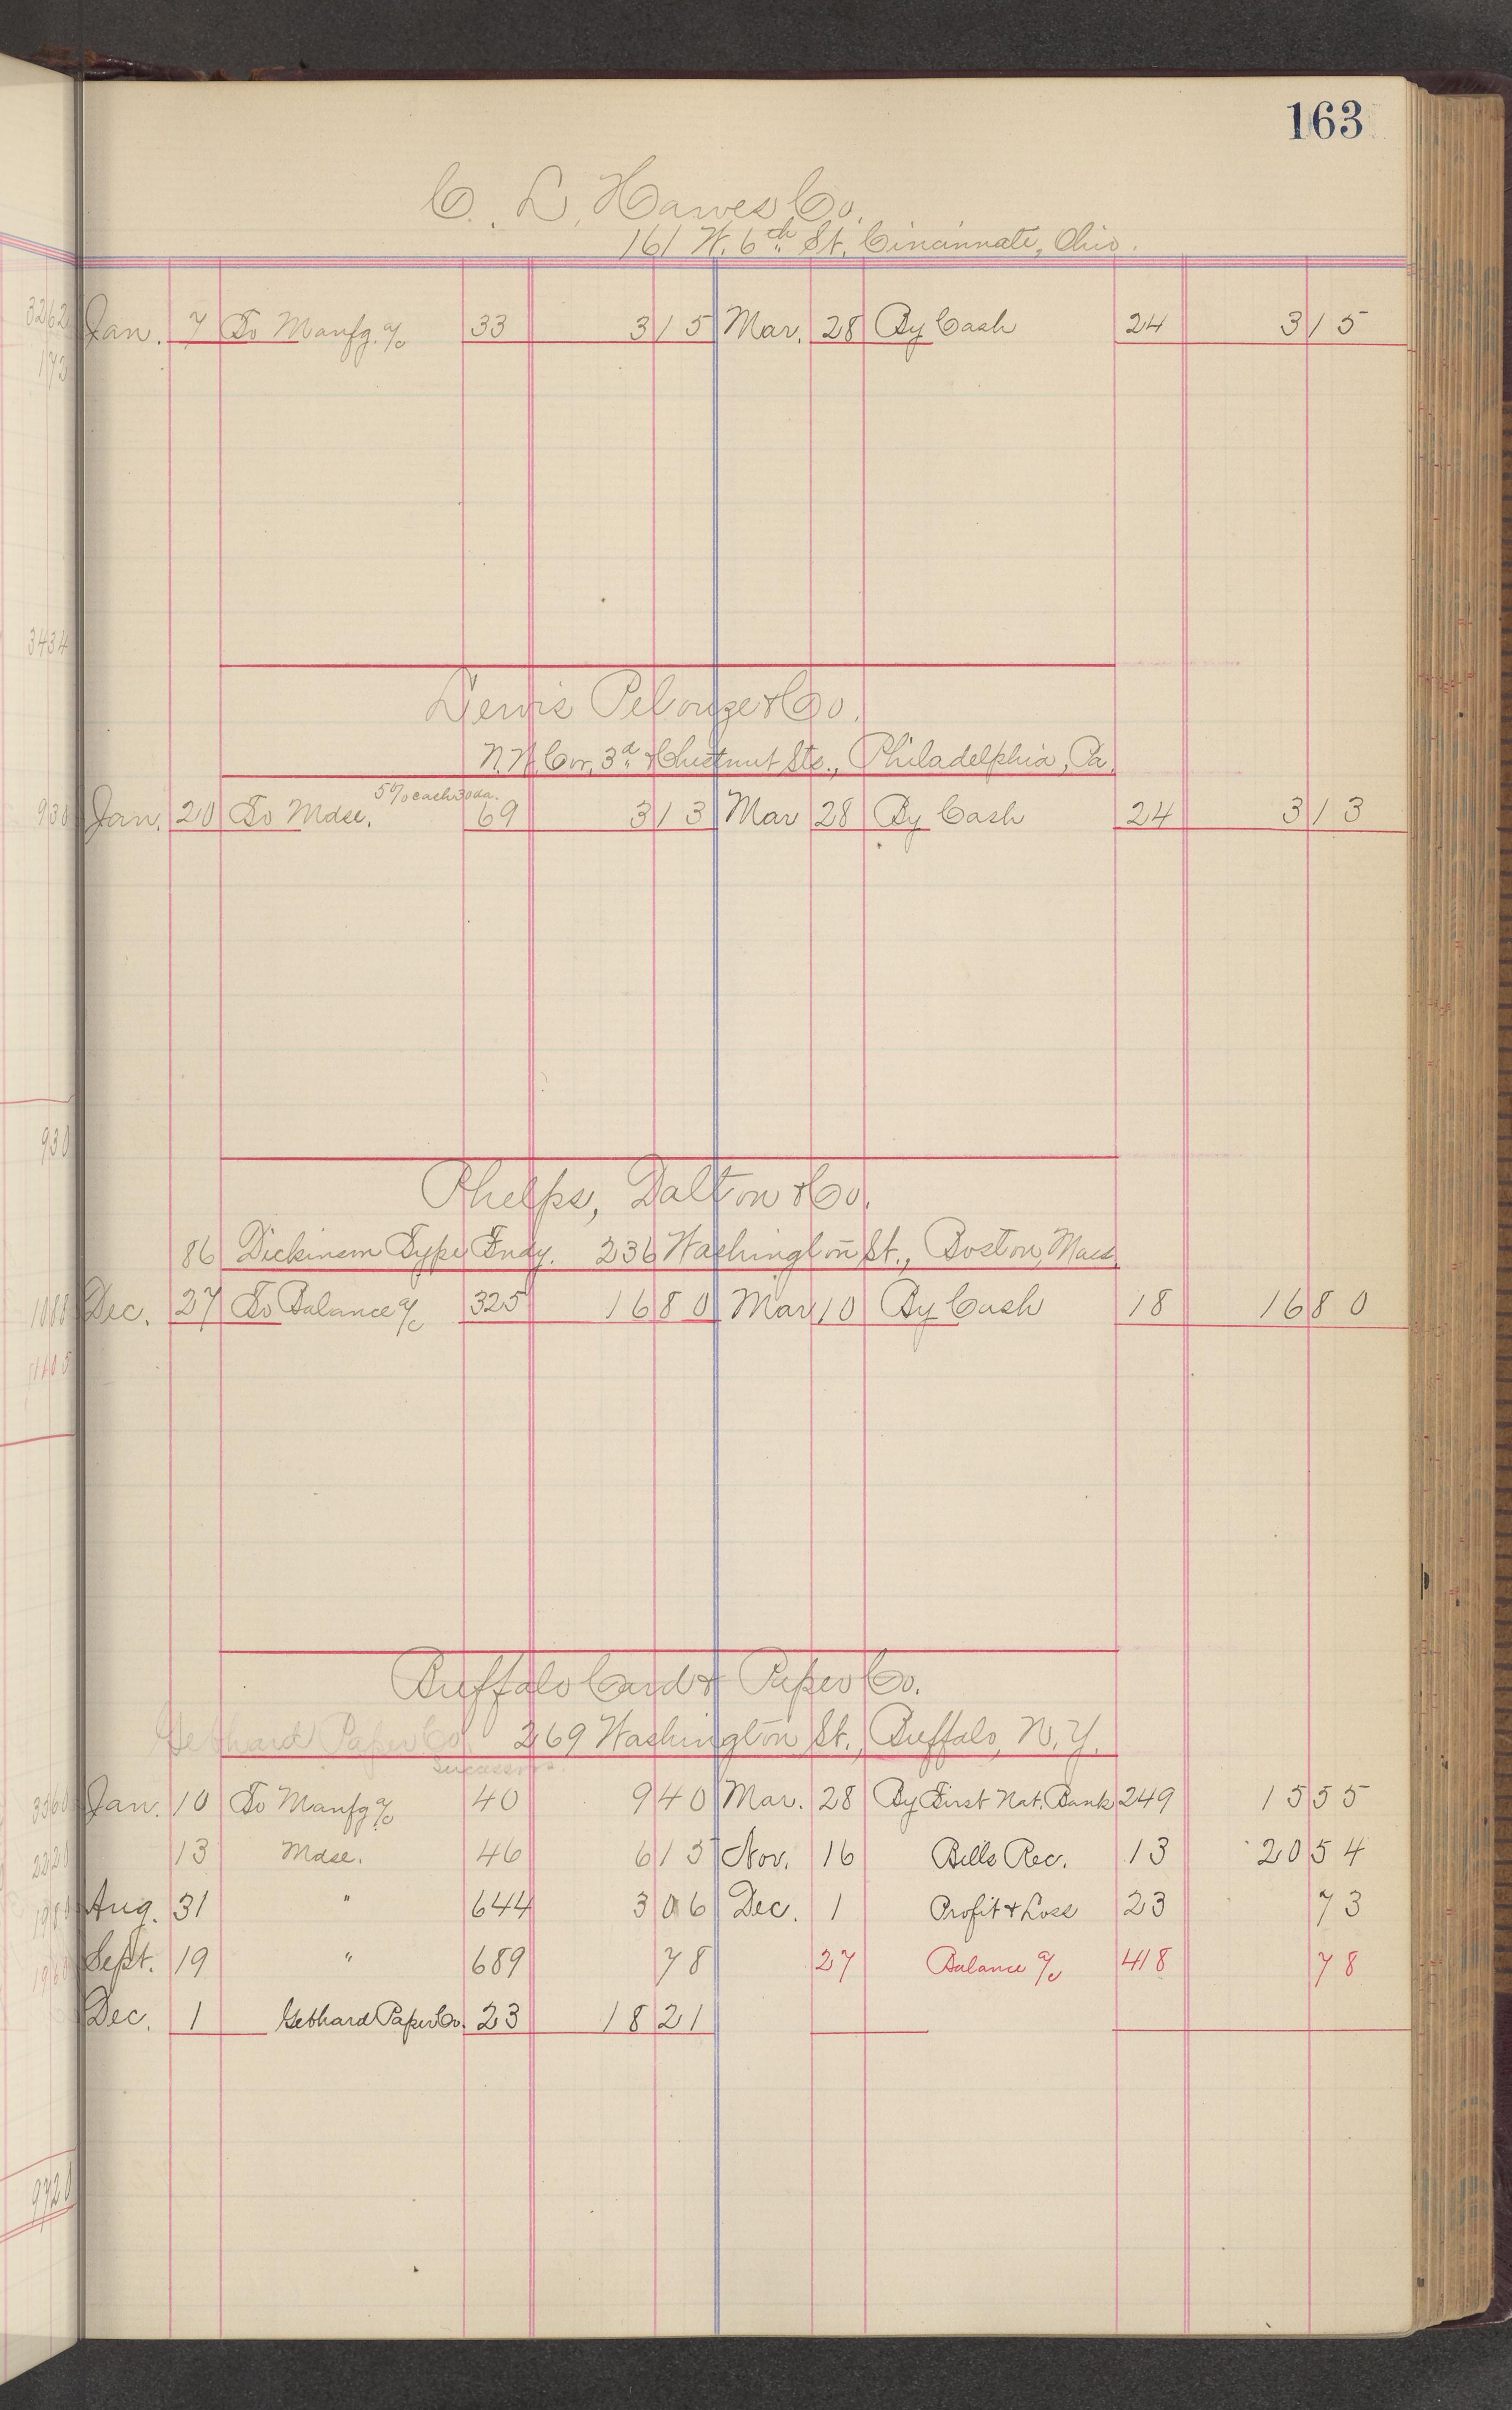 163
C. L. Hawes Co.
161 W. 6th St. Cincinnati, Ohio.
Jan. 7 To Manfg. a/c 33 3 15 Mar. 28 By Cash 24 3 15
Lewis Pelouze & Co.
N.W. Cor. 3d & Chestnut Sts., Philadelphia, Pa.
5% cash 30 da.
Jan. 20 To Mdse. 69 3 13 Mar 28 By Cash 24 3 13
Phelps, Dalton & Co.
86 Dickinson Type Fndy. 236 Washington St., Boston, Mass.
Dec. 27 To Balance a/c 325 16 80 Mar 10 By Cash 18 16 80
Buffalo Card & Paper Co.
Gebhard Paper Co. 269 Washington St., Buffalo, N.Y.
Successors.
Jan. 10 To Manfg a/c 40 9 40 Mar. 28 By First Nat. Bank 249 15 55
13 Mdse. 46 6 15 Nov. 16 Bills Rec. 13 20 54
Aug. 31 " 644 3 06 Dec. 1 Profit & Loss 23 73
Sept. 19 " 689 78 27 Balance a/c 418 78
Dec. 1 Gebhard Paper Co. 23 18 21
3262
172
3434
930
930
1088
1105
3360
2220
1980
1960
9720